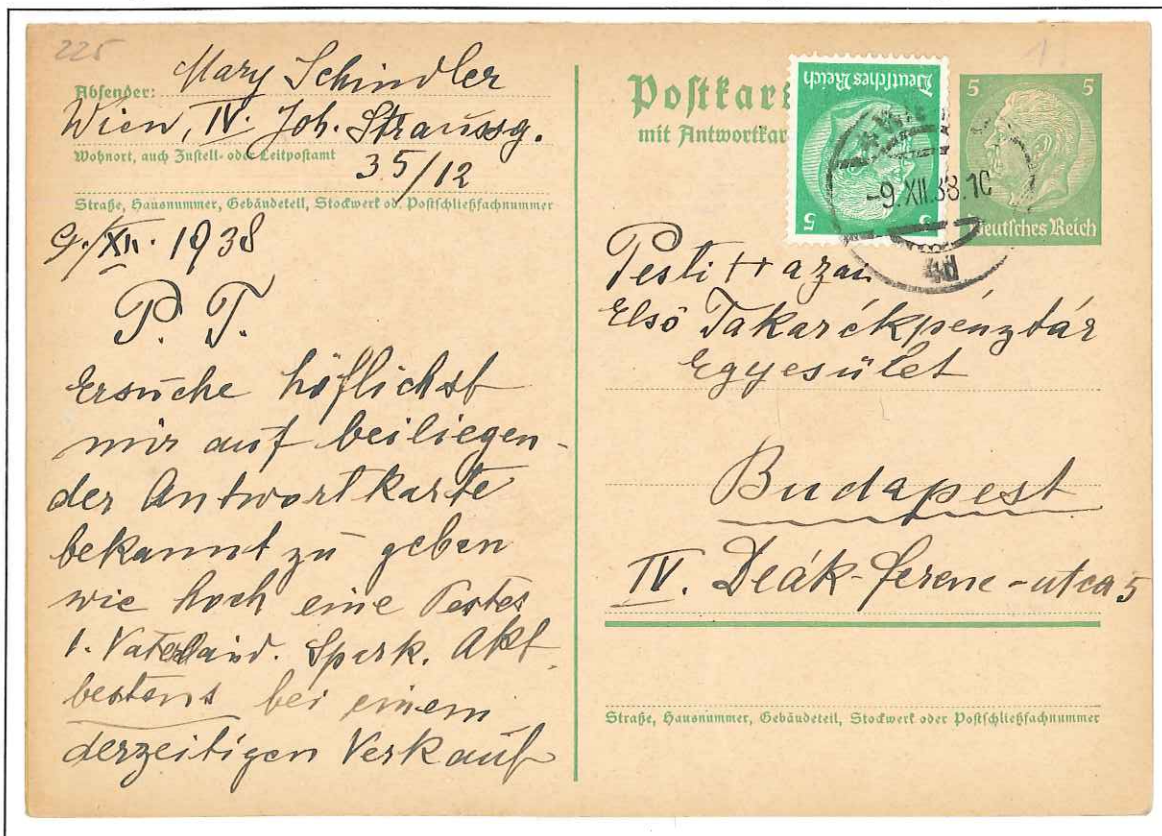 225
Absender: Mary Schindler
Wien, IV. Joh. Straussg.
Wohnort, auch Zustell- oder Leitpostamt
35/12
Straße, Hausnummer, Gebäudeteil, Stockwerk od. Postschließfachnummer
9./XII. 1938
P. T.
Ersuche höflichst
mir auf beiliegen-
der Antwortkarte
bekannt zu geben
wie hoch eine Pester
1. Vaterländ. Spark. Akt.
bestens bei einem
derzeitigen Verkauf
1
Postkart
mit Antwortkar
Deutsches Reich
5
5
5 5
Deutsches Reich
-9.XII.38.10
Pesti
Első Takarékpénztár
Egyesület
Budapest
IV. Deák-Ferenc-utca 5
Straße, Hausnummer, Gebäudeteil, Stockwerk oder Postschließfachnummer